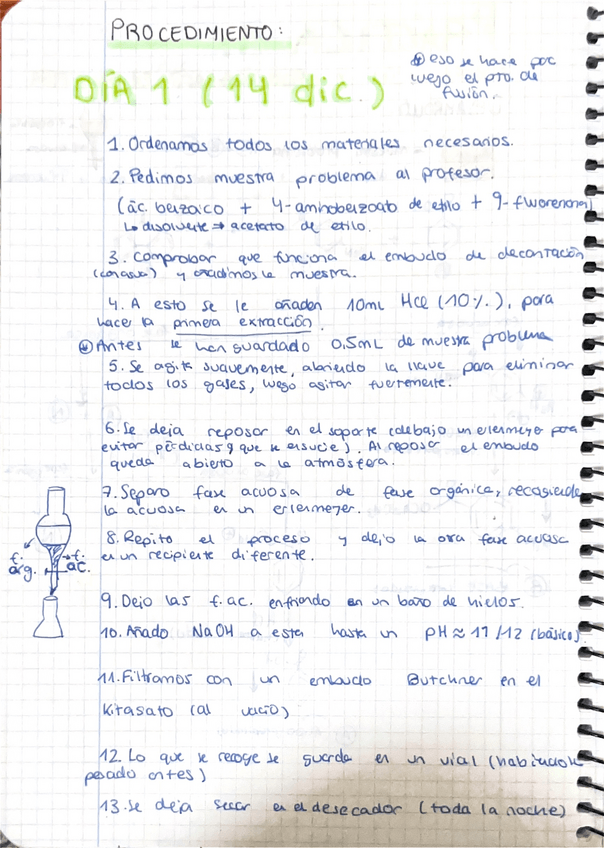 PROCEDIMIENTO:
⊕ eso se hace por
luego el pto. de
fusión.
DÍA 1 (14 dic.)
1. Ordenamos todos los materiales necesarios.
2. Pedimos muestra problema al profesor.
(ác. benzoico + 4-aminobenzoato de etilo + 9-fluorenona)
↳ disolvente ⇒ acetato de etilo.
3. Comprobar que funciona el embudo de decantación
(con agua) y añadimos la muestra.
4. A esto se le añaden 10mL HCl (10%), para
hacer la primera extracción.
⊕ Antes se han guardado 0,5mL de muestra problema
5. Se agita suavemente, abriendo la llave para eliminar
todos los gases, luego agitar fuertemente.
6. Se deja reposar en el soporte (debajo un erlenmeyer para
evitar pérdidas y que se ensucie). Al reposar el embudo
queda abierto a la atmósfera.
7. Separo fase acuosa de fase orgánica, recogiendo
la acuosa en un erlenmeyer.
8. Repito el proceso y dejo la otra fase acuosa
en un recipiente diferente.
f. org.
f. ac.
9. Dejo las f. ac. enfriando en un baño de hielos.
10. Añado NaOH a esta hasta un pH ≈ 11/12 (básico).
11. Filtramos con un embudo Butchner en el
Kitasato (al vacío)
12. Lo que se recoge se guarda en un vial (habiéndole
pesado antes)
13. Se deja secar en el desecador (toda la noche)